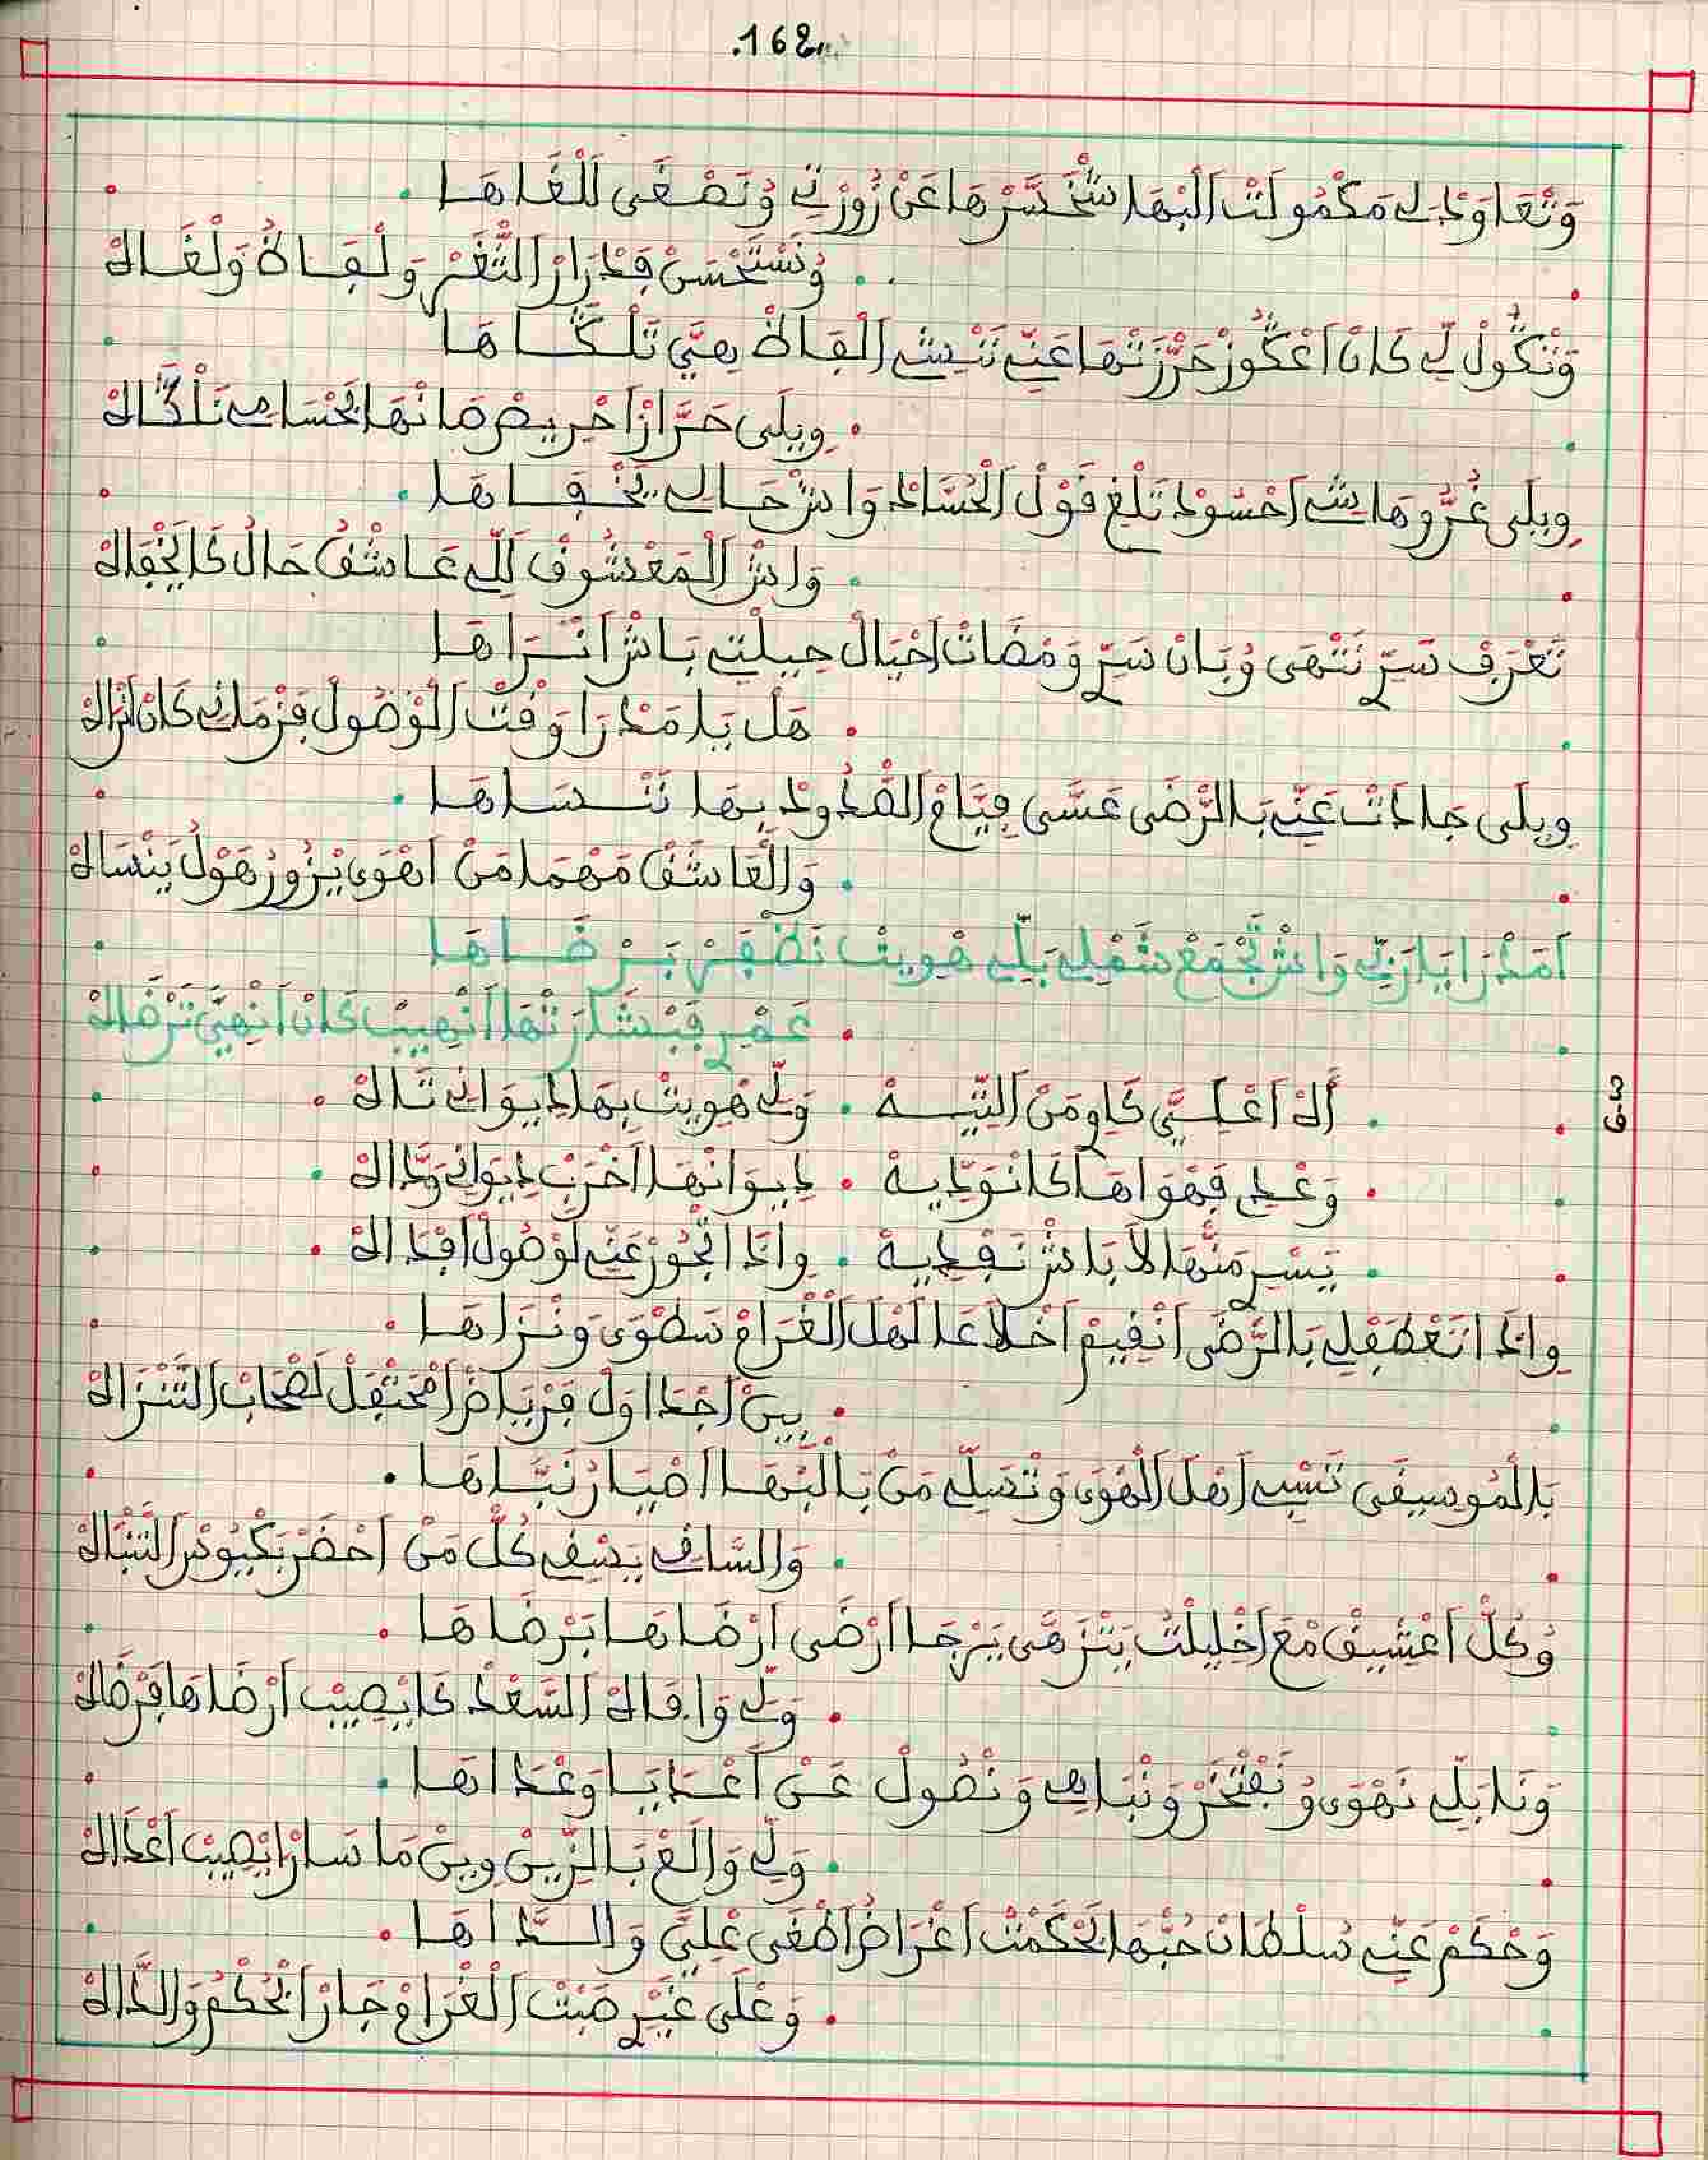 .168.
وَتْعَاوَدْ لِي مَكْمُولَتْ اَلْبْهَا شْخَسَّرْهَا عَنْ زُورْتِي وُتَصْغَى لَلْغَاهَا
وُنَسْتَحْسَنْ فَدْرَارْ اَلثَّغَرْ وَلْفَاظُ وَلْغَاهْ
وَتْگُولْ لِي كَانْ اَعْگُوزْ حَرّْزَتْهَا عَنِّي نَنْشِي اَلْفَاظْ هِيَّ تَلْگَاهَا
وِيلَى حَرَّازْ اَحْرِيصْ مَانْهَابْ احْسَامِي نَلْگَاهْ
وِيلَى غُرُّوهَا شِي اَحْسُودْ تَلْغِ قَوْلْ اَلْحُسَّادْ وَاشْ حَالِي يَخْفَاهَا
وَاشْ اَلْمَعْشُوقْ اَللِّي عَاشْقُ حَالُ كَا يَخْفَاهْ
تَعْرَفْ سَرِّي نَتْهَى وُبَانْ سَرِّي وَمْضَاتْ اَحْيَالْ حِيلْتِي بَاشْ اَنْـرَاهَا
هَلْ يَا مَدْرَا وَقْتْ اَلْوْصُولْ فَزْمَانِي كَانْ اَنْرَاهْ
وِيلَى جَادَتْ عَنِّي بَالرّْضَى عَسَّى فِيَّامْ اَلصّْدُودْ بِهَا نَنْسَاهَا
وَالْعَاشَقْ مَهْمَا مَنْ اَهْوَى يْزُورُ هَوْلُ يَنْسَاهْ
اَمَدْرَا يَا رَبِّي وَاشْ تَجْمَعْ شَمْلِي بَلِّي هْوِيتْ نَظْفَرْ بَرْضَاهَا
عَمْرِي فَبْشَارَتْهَا اَنْهِيبْ كَانْ اَنْهِيَّ تَرْضَاهْ
اَلَهْ اَعْلَـيَّ كَاوِي مَنْ اَلتِّيـهْ . وَلِّي هْوِيتْ بِهَا دِيوَانِي تَاهْ
وَعْدِي فَهْوَاهَا كَانْوَدِّيهْ . دِيوَانْهَا اَخْرَبْ دِيوَانِي وَدَّاهْ
يَسْرِ مَنّْهَا لاَ بَاشْ نَفْدِيهْ . وِإِذَا اتْجُودْ عَنِّي لَوْصُولْ اَفْدَاهْ
وِإِذَا اتْعْطَفْ لِي بَالرّْضَى اَنْقِيمْ اَخْلاَعَا لَهْلْ اَلْغْرَامْ سَطْوَى وَنْزَاهَا
بِينْ اَجْدَاوَلْ فَرْيَاضْ اَمْحَتْفَلْ لَصْحَابْ اَلتَّنْزَاهْ
بَالْمُوسِيقَى نَسْبِي اَهْلْ اَلْهْوَى وَنْصَلِّي مَنْ بَالْبْهَا اَضْيَارْ نَبَّاهَا
وَالسَّاقِي يَسْقِي كُلّْ مَنْ اَحْضَرْ بَكْيُوسْ اَلتَّنْبَاهْ
وُكُلّْ اَعْشِيقْ مْعَ اَخْلِيلْتُ يَتْزَهَّى يَرْجَا اَرْضَى اَرْضَاهَا بَرْضَاهَا
وَلِّي وَافَاهْ اَلسَّعْدْ كَا يْصِيبْ اَرْضَاهَا فَرْضَاهْ
وَنَا بَلِّي نَهْوَى وُنَفْتْخَرْ وَنْبَاهِي وَنْصُولْ عَنْ اَعْدَايَا وَعْدَاهَا
وَلِّي وَالَعْ بَالزِّينْ وِينْ مَا سَارْ اَيْصِيبْ اَعْدَاهْ
وَحْكَمْ عَنِّي سُلْطَانْ حُبّْهَا بَحْكَمْتْ اَغْرَاضُ اَطْغَى عْلِيَّ وَالـدَّاهَا
وَعْلَى غَيْرِي صَبْتْ اَلْغْرَامْ جَارْ اَبْحُكْمُ وَالدَّاهْ